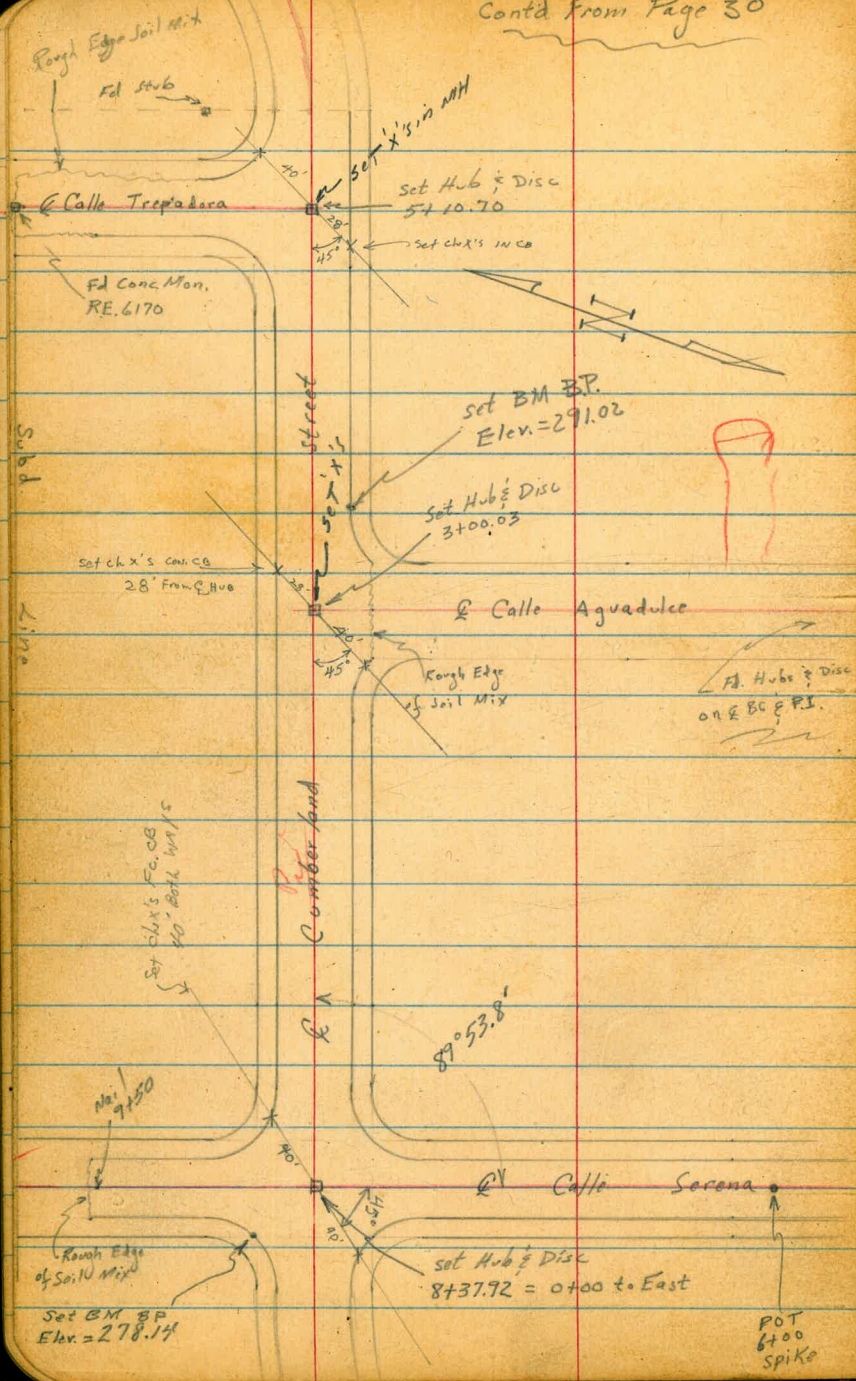 Cont'd From Page 30
Rough Edge Soil Mix
Fd Stub
set 'x's in MH
40'
set Hub & Disc
5+10.70
℄ Calle Trepadora
28'
45°
set chx's IN CB
Fd Conc. Mon.
RE. 6170
set BM B.P.
Elev. = 291.02
Street
set 'x's
Subd
Line
Set Hub & Disc
3+00.03
set chx's conc. CB
28' From ℄ HUB
28'
℄ Calle Aguadulce
40'
45°
Rough Edge
of Soil Mix
Fd. Hubs & Disc
on ℄ BC & P.I.
℄ Cumberland
Set chx's Fc. CB
40' Both ways
89°53.8'
Nail
9+50
40'
℄ Calle Serena
45°
40'
Rough Edge
of Soil Mix
set Hub & Disc
8+37.92 = 0+00 to East
Set BM BP
Elev. = 278.14
POT
6+00
Spike